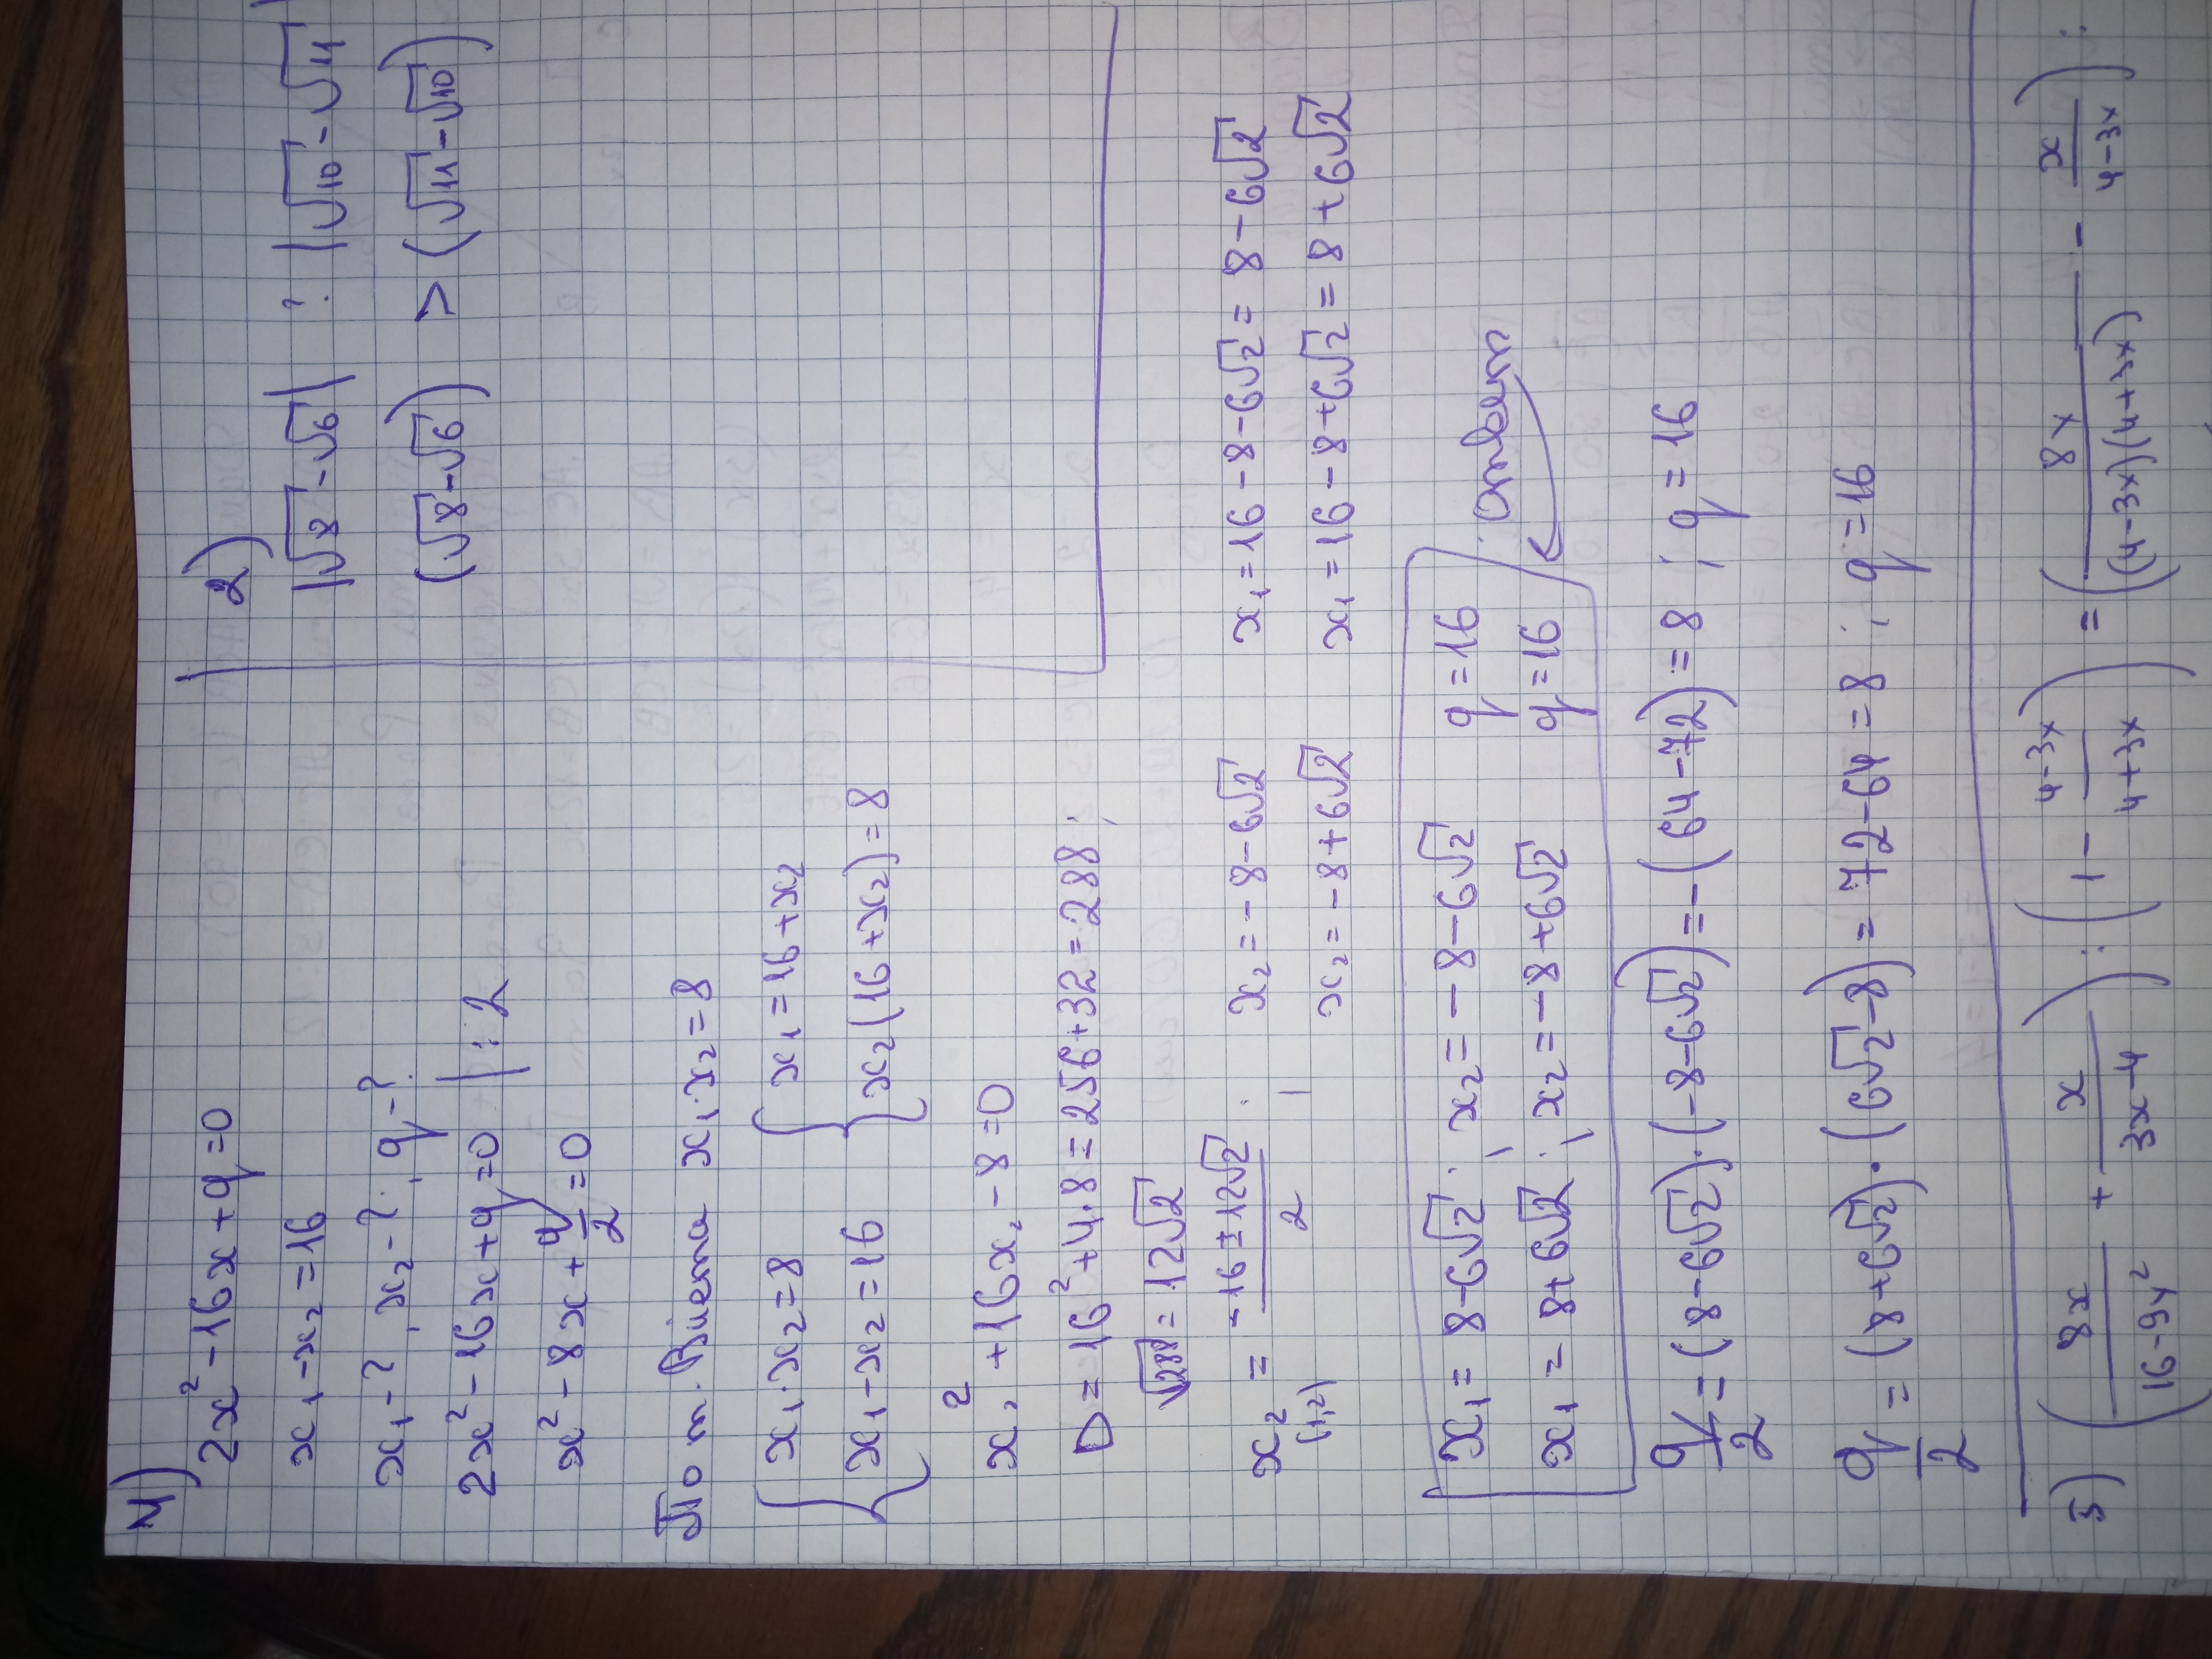 4)
2x² - 16x + q = 0
x₁ - x₂ = 16
x₁ - ? , x₂ - ? , q - ?
2x² - 16x + q = 0 | : 2
x² - 8x + q/2 = 0
По т. Виета x₁ · x₂ = 8
{ x₁ · x₂ = 8 { x₁ = 16 + x₂
{ x₁ - x₂ = 16 { x₂(16 + x₂) = 8
x₂² + 16x₂ - 8 = 0
D = 16² + 4·8 = 256 + 32 = 288 ;
√288 = 12√2
x₂ (1,2) = (-16 ± 12√2)/2 ; x₂ = -8 - 6√2 x₁ = 16 - 8 - 6√2 = 8 - 6√2
x₂ = -8 + 6√2 x₁ = 16 - 8 + 6√2 = 8 + 6√2
x₁ = 8 - 6√2 ; x₂ = -8 - 6√2 q = 16
x₁ = 8 + 6√2 ; x₂ = -8 + 6√2 q = 16
ответ
q/2 = (8 - 6√2) · (-8 - 6√2) = -(64 - 72) = 8 ; q = 16
q/2 = (8 + 6√2) · (6√2 - 8) = 72 - 64 = 8 ; q = 16
2)
|√8 - √6| ? |√10 - √11
(√8 - √6) > (√11 - √10)
5) (8x/(16 - 9x²) + x/(3x - 4)) : (1 - (4 - 3x)/(4 + 3x)) = (8x/((4 - 3x)(4 + 3x)) - x/(4 - 3x)) :